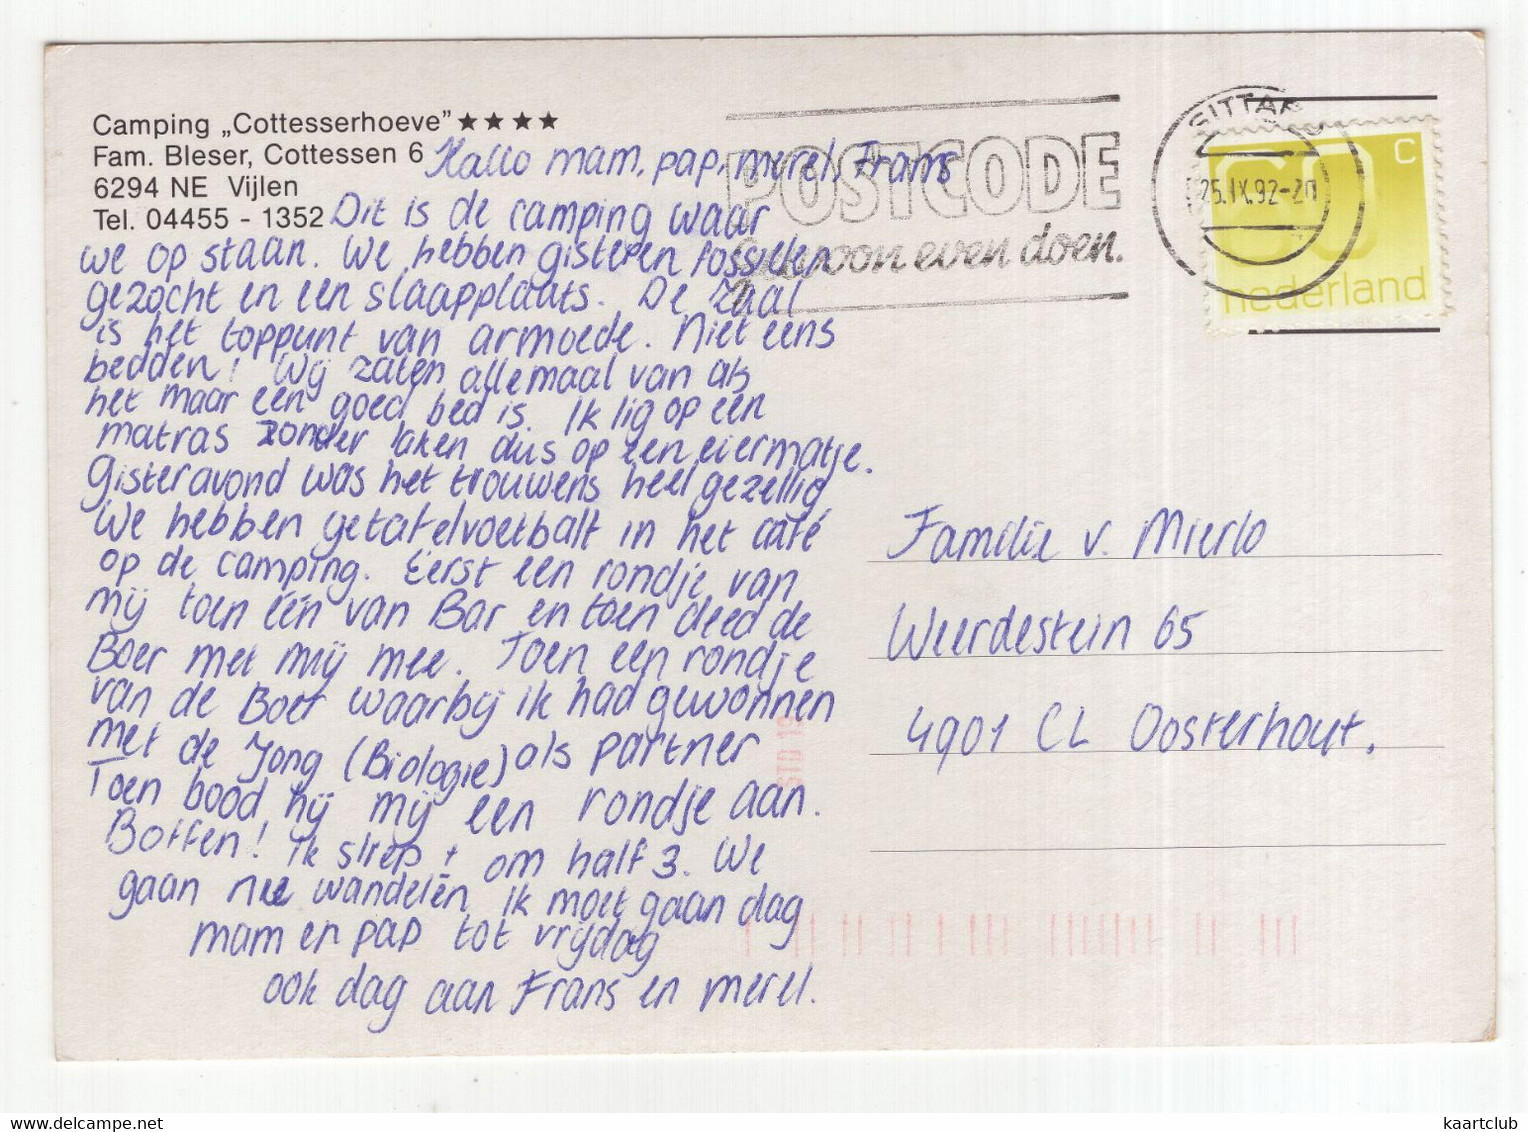 Camping „Cottesserhoeve" ★★★★
Fam. Bleser, Cottessen 6
6294 NE Vijlen
Tel. 04455 - 1352
Hallo mam, pap, merel, Frans
Dit is de camping waar
we op staan. We hebben gisteren fossielen
gezocht en een slaapplaats. De zaal
is het toppunt van armoede. Niet eens
bedden! Wij zaten allemaal van als
het maar een goed bed is. Ik lig op een
matras zonder laken dus op een eiermatje.
Gisteravond was het trouwens heel gezellig
We hebben getafelvoetbalt in het café
op de camping. Eerst een rondje van
mij toen één van Bar en toen deed de
Boer met mij mee. Toen een rondje
van de Boer waarbij ik had gewonnen
met de Jong (Biologie) als partner
Toen bood hij mij een rondje aan.
Boffen! Ik sliep ± om half 3. We
gaan nu wandelen Ik moet gaan dag
mam en pap tot vrijdag
ook dag aan Frans en merel.
POSTCODE
Gewoon even doen.
SITTARD
25.IX.92-20
60 C
nederland
Familie v. Mierlo
Weerdestein 65
4901 CL Oosterhout.
STD 18
kaartclub